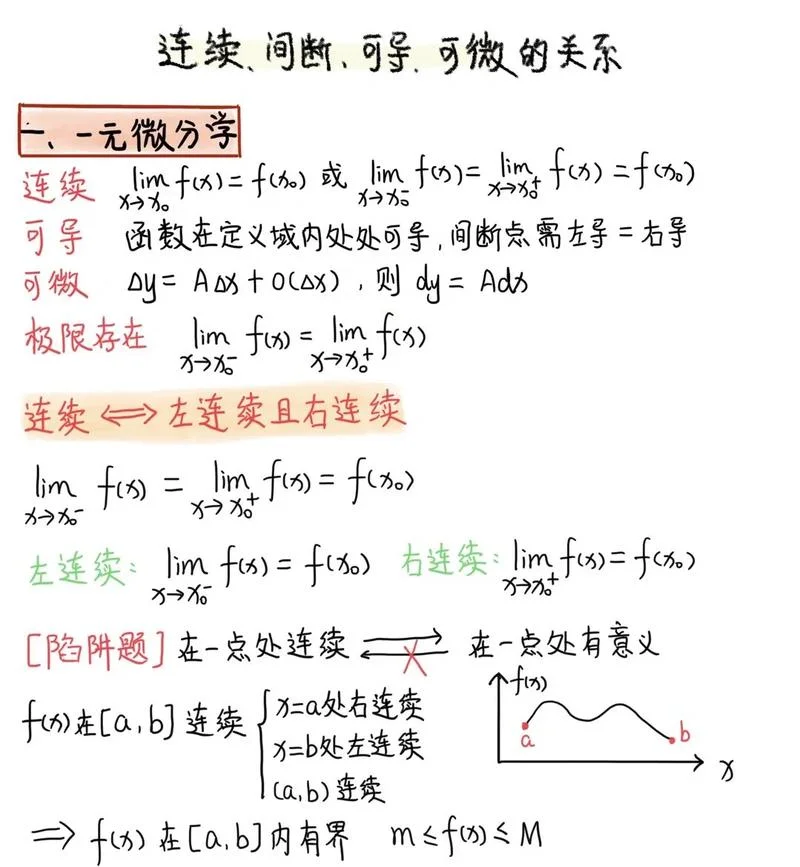 连续、间断、可导、可微的关系
一、一元微分学
连续 lim x→x₀ f(x) = f(x₀) 或 lim x→x₀⁻ f(x) = lim x→x₀⁺ f(x) = f(x₀)
可导 函数在定义域内处处可导,间断点需左导=右导
可微 Δy = AΔx + o(Δx),则 dy = Adx
极限存在 lim x→x₀⁻ f(x) = lim x→x₀⁺ f(x)
连续 ⟺ 左连续且右连续
lim x→x₀⁻ f(x) = lim x→x₀⁺ f(x) = f(x₀)
左连续: lim x→x₀⁻ f(x) = f(x₀) 右连续: lim x→x₀⁺ f(x) = f(x₀)
[陷阱题] 在一点处连续 ⇄ 在一点处有意义
f(x)在[a,b]连续 { x=a处右连续
x=b处左连续
(a,b)连续
f(x)
a
b
x
⟹ f(x)在[a,b]内有界 m≤f(x)≤M